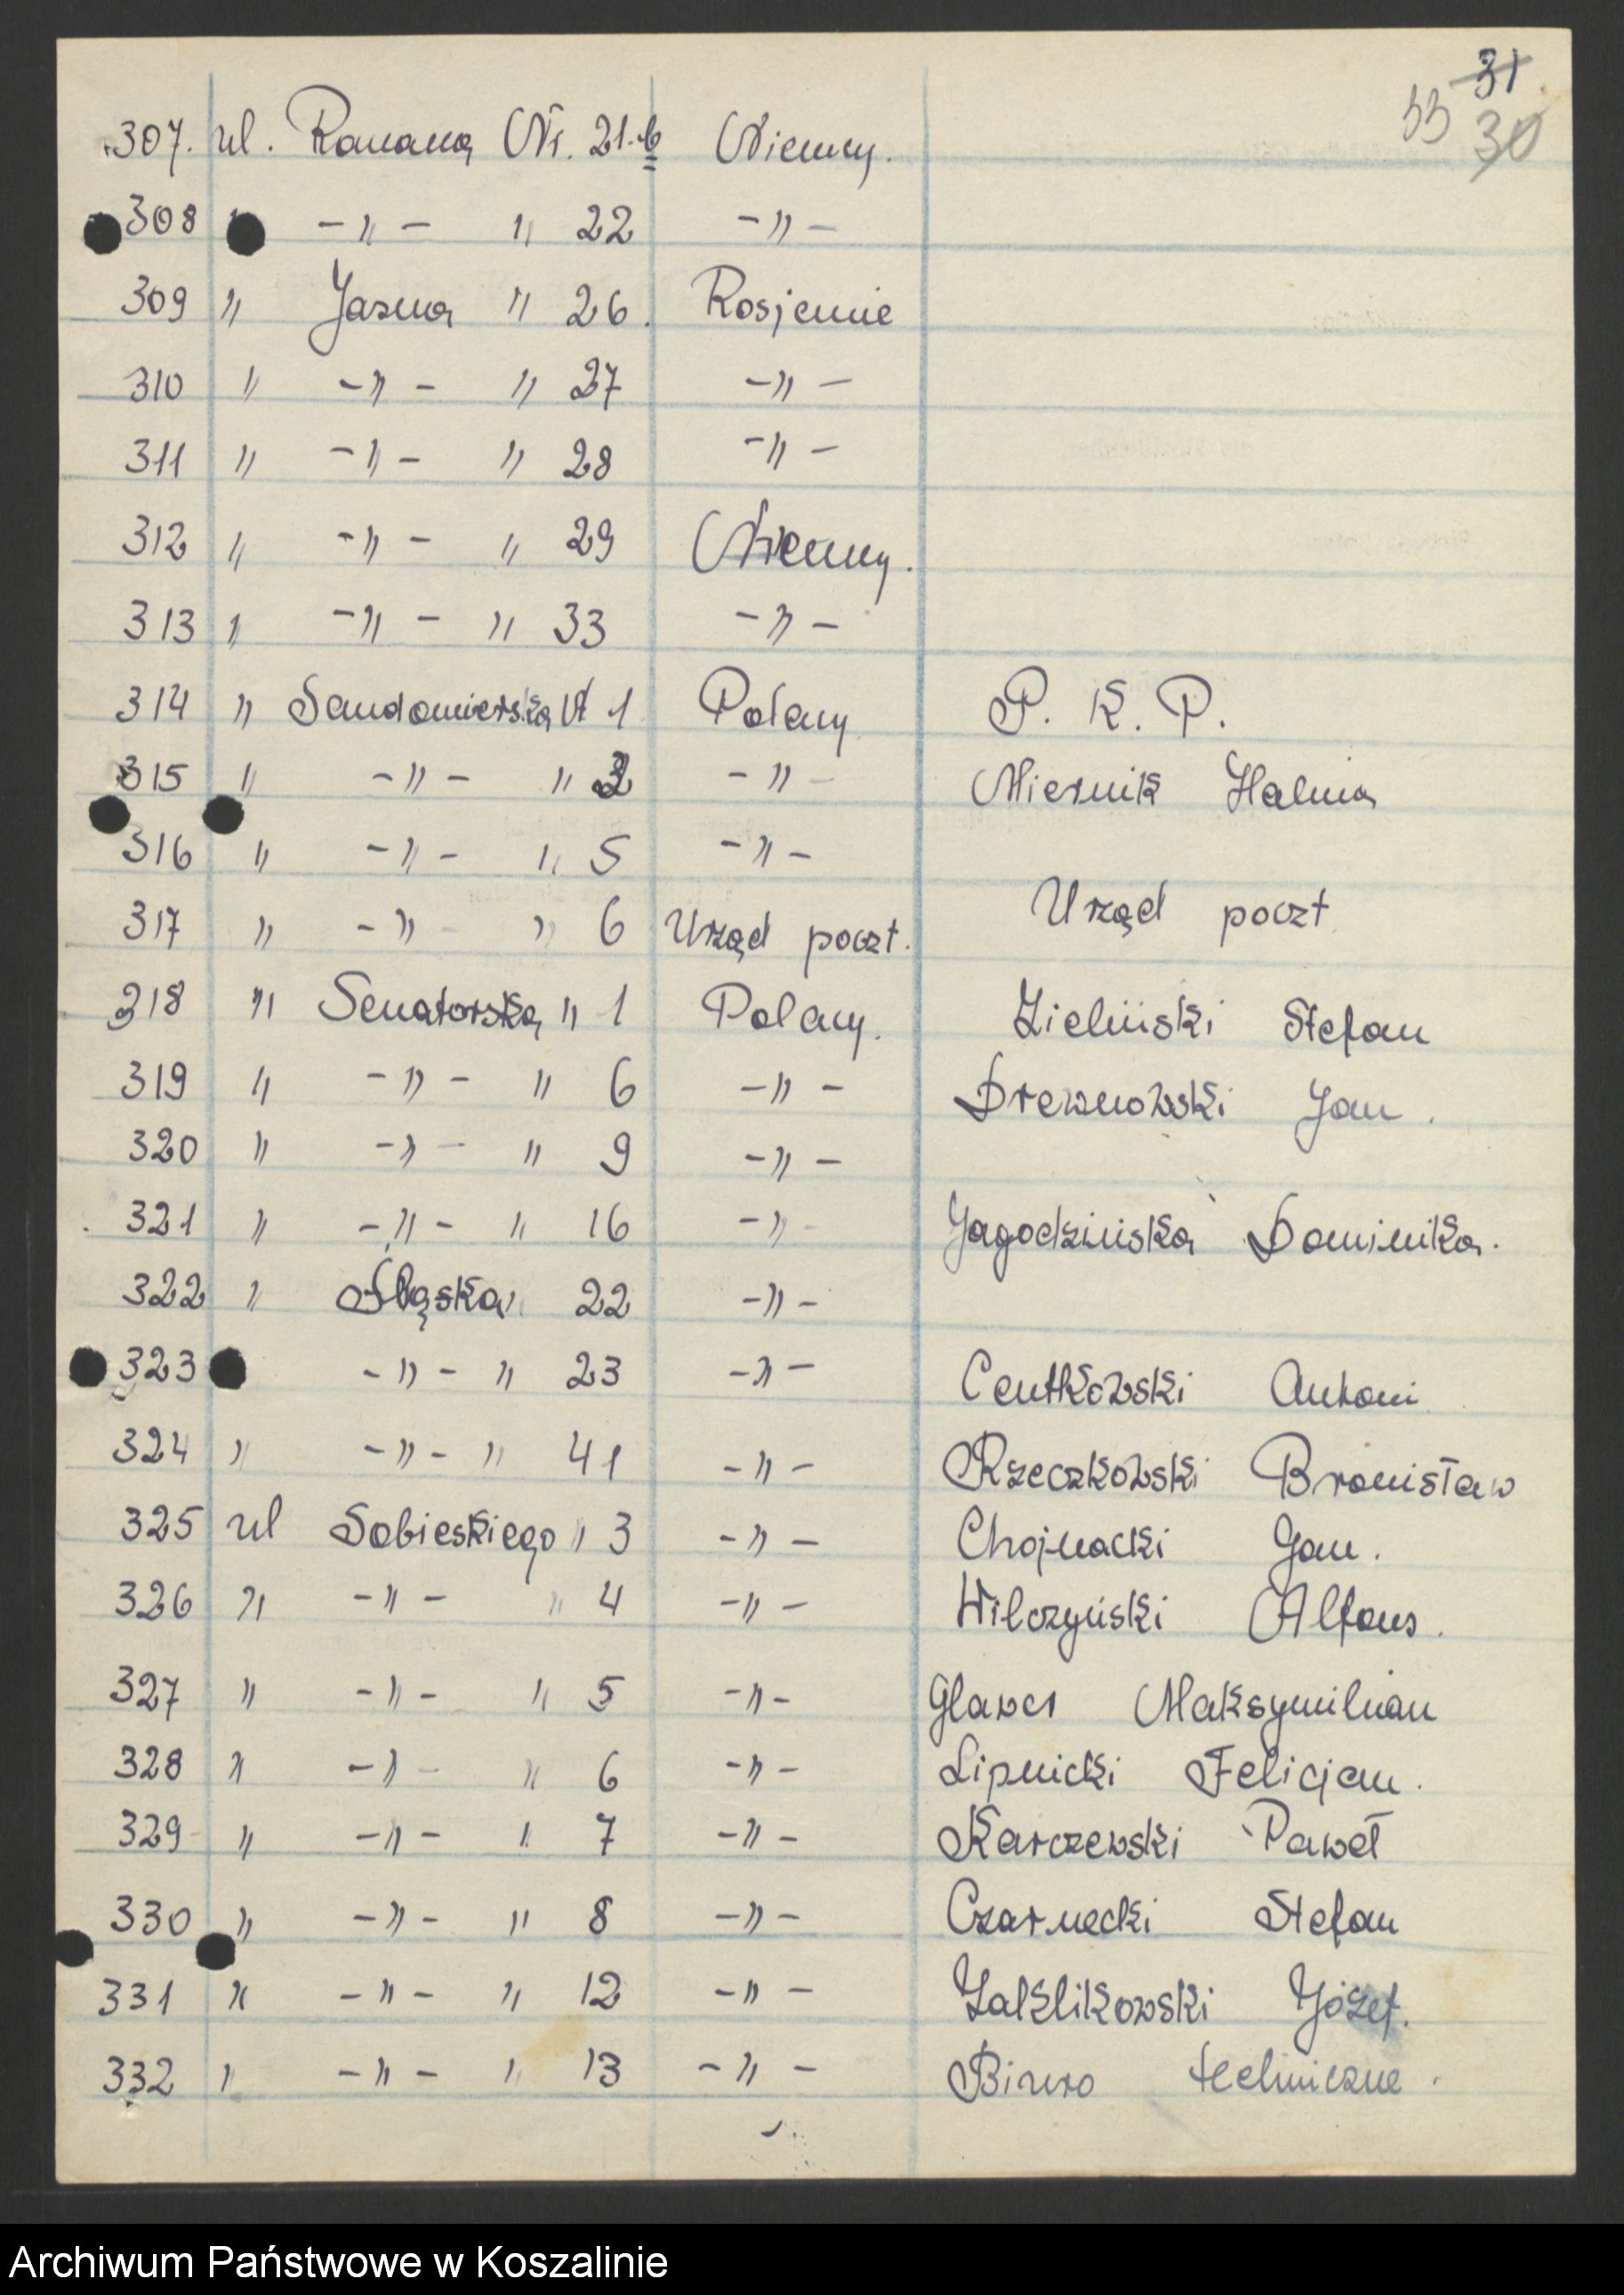 31.
33 30
307. ul. Ranana Nr. 21.b Niemcy.
308 " -"- " 22 -"-
309 " Jasna " 26. Rosjanie
310 " -"- " 27 -"-
311 " -"- " 28 -"-
312 " -"- " 29 Niemcy.
313 " -"- " 33 -"-
314 " Sandomierska N 1 Polacy P. K. P.
315 " -"- " 3 -"- Miernik Halina
316 " -"- " 5 -"-
317 " -"- " 6 Urząd poczt. Urząd poczt
318 " Senatorska " 1 Polacy. Zieliński Stefan
319 " -"- " 6 -"- Drewnowski Jan.
320 " -"- " 9 -"-
321 " -"- " 16 -"- Jagodzińska Dominika.
322 " Śląska " 22 -"-
323 -"- " 23 -"- Centkowski Antoni
324 " -"- " 41 -"- Rzeczkowski Bronisław
325 ul Sobieskiego " 3 -"- Chojnacki Jan.
326 " -"- " 4 -"- Wilczyński Alfons.
327 " -"- " 5 -"- Maksymilian
328 " -"- " 6 -"- Lipnicki Felicjan.
329 " -"- " 7 -"- Karczewski Paweł
330 " -"- " 8 -"- Czarnecki Stefan
331 " -"- " 12 -"- Zalklikowski Józef.
332 " -"- " 13 -"- Biuro techniczne.
Archiwum Państwowe w Koszalinie